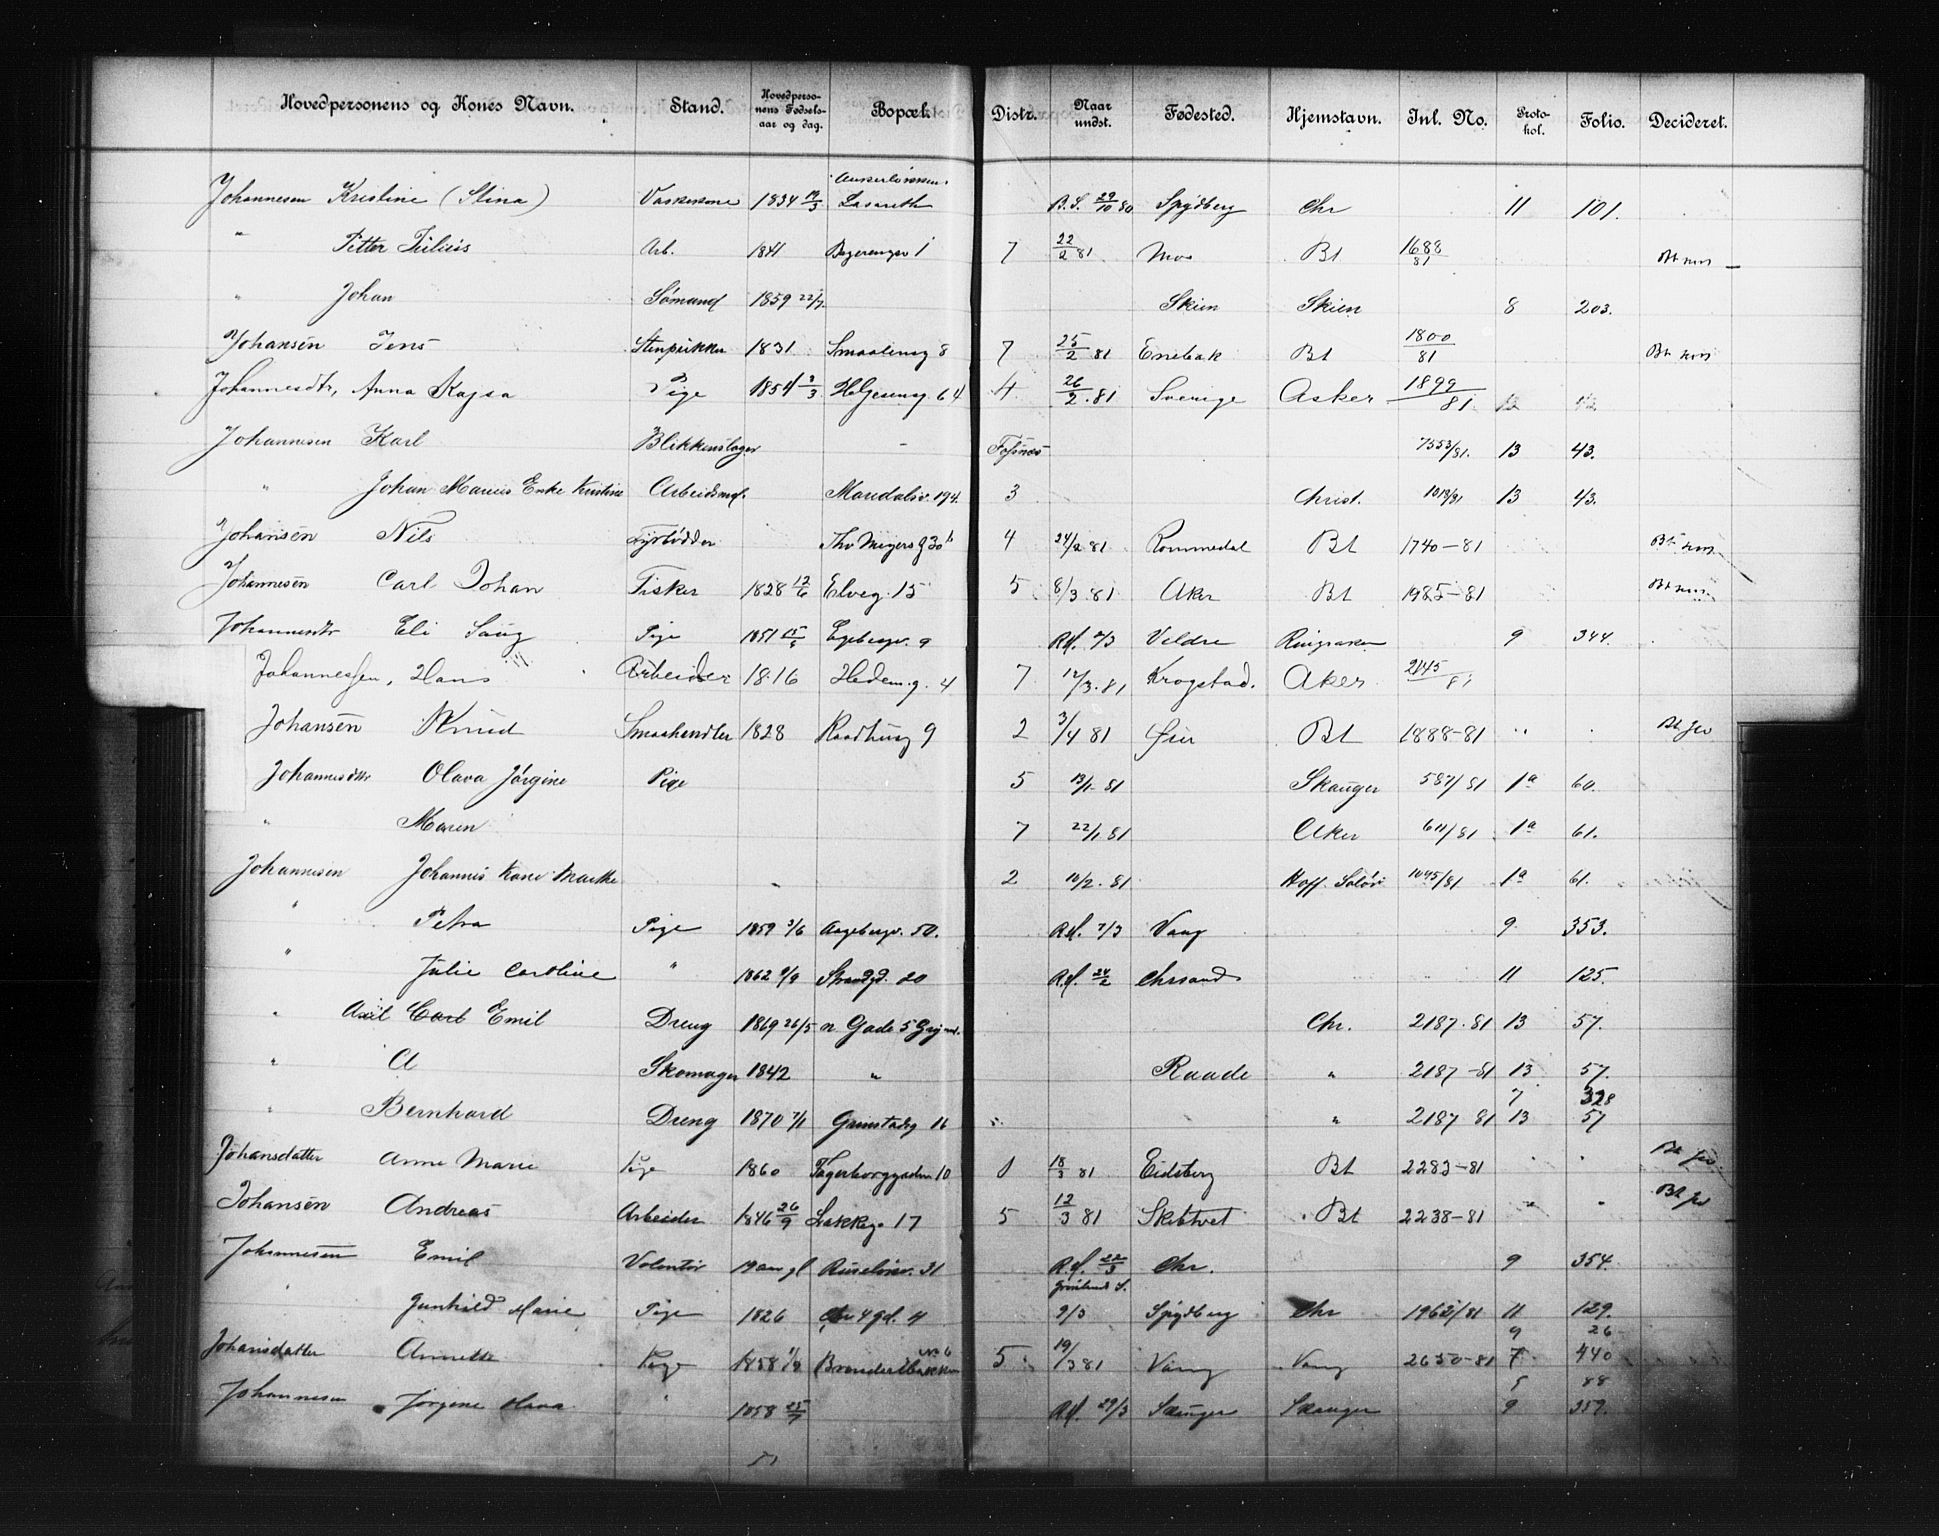 Hovedpersonens og Kones Navn. Stand. Hovedpersonens Fødselsaar og dag. Bopæl. Distr. Naar undst. Fødested. Hjemstavn. Inl. No. Protokol. Folio. Decideret.
Johannesen Kristine (Stina) Vaskekone 1834 Lasareth 29/10 80 Spydberg Chr 11 101.
" Petter Julius Arb. 1841 7 22/2 81 Mos Bt 1688/81
" Johan Sømand 1859 22/7 Skien Skien 8 203.
Johansen Jens 1831 Smaaleng 8 7 25/2 81 Enebak Bt 1800/81
Johannesdtr, Anna Kajsa Pige 1854 Helgesensg. 64 4 26/2.81 Sverige Asker 1899/81.
Johannesen Karl Blikkenslager - Fossnes 7553/81. 13 43.
" Johan Marius Enke Kristine Arbeidsmd. Maridalsv. 194. 3 Christ. 13 43.
Johansen Nils Fyrbødder Thv Meyers g 30 b 4 24/2 81 Rommedal Bt 1740-81
Johannesen Carl Johan Fisker 1828 12/6 Elveg. 15 5 8/3 81 Aker Bt 1985-81
Johannesdtr Eli Pige 1851 Egebergv. 9 Veldre Ringsaker 9 344.
Johannessen, Hans Arbeider 1816 Hedem.g. 4 7 12/3.81 Krogstad. Aker 2145/81
Johansen Knud Smaahandler 1828 Raadhusg 9 2 3/4 81 Øier Bt 1888-81 " .
Johannesdtr Olava Jørgine Pige 5 13/1 81 Skauger 587/81 1a 60.
" Maren 7 22/1 81 Aker 611/81. 1a 61.
Johannesen Johannes Kone Marthe - 2 10/2. 81 Hoff. Solør 1045/81 1a 61.
" Petra Pige 1859 3/6 Aagebergv. 50. 7/3 Vang 9 353.
" Julie Caroline " 1862 9/9 Strandgd. 20 24/2 Chrsand 11 125.
" Axil Carl Emil Dreng 1869 26/5 n Gade 5 Chr. 2187.81 13 57.
" A Skomager 1842 " Raade " 2187-81 13 57.
7 328
" Bernhard Dreng 1870 7/11 Grimstadg 16 " 2187 81 13 57
Johansdatter Anne Marie Pige 1860 Fagerborggaden 10 18/3 81 Eidsberg Bt 2283-81
Johansen Andreas Arbeider 1846 26/9 Lakkeg. 17 5 12/3 81 Skibtvet Bt 2238-81
Johannesen Emil Volontør 19 aar gl 31 22/3 Chr. 9 354.
" Gunhild Marie Pige 1826 4 9/3 Spydberg Chr 1962/81 11 129.
9 26
Johansdatter Annette Pige 1858 5 19/3 81 Vang Vang 2650-81 7 440
5 88
Johannesen Jørgine Olava " 1858 25/7 29/3 Skauger Skauger 9 359.